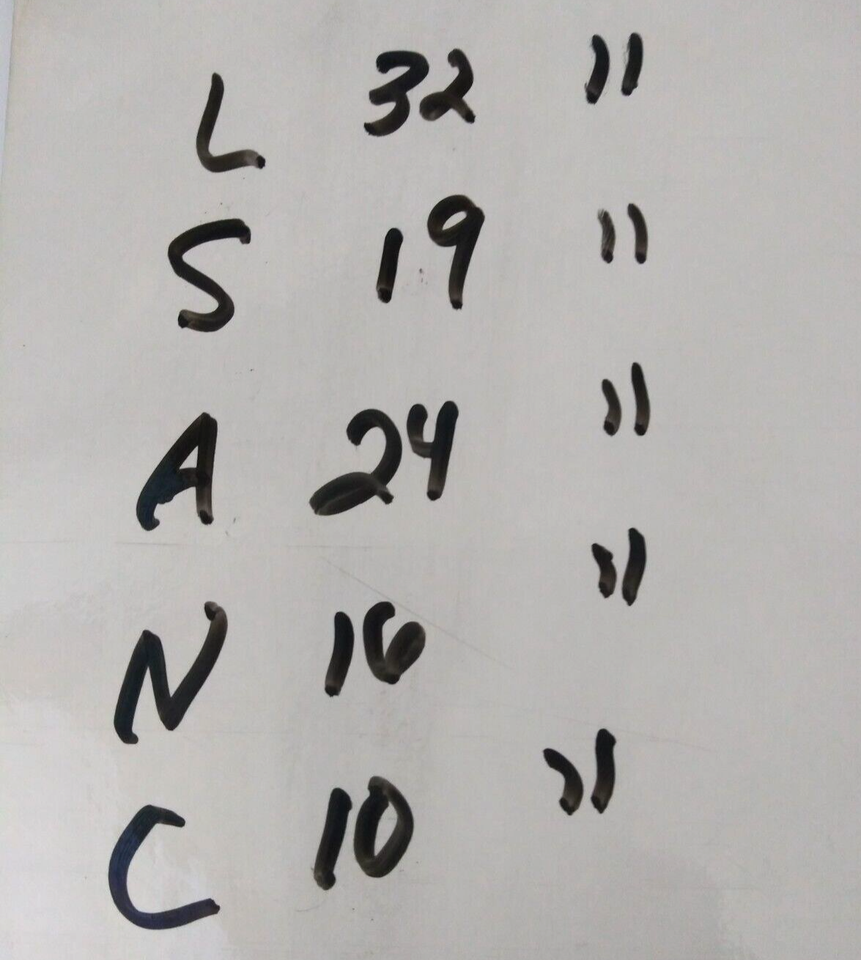 L 32 "
S 19 "
A 24 "
N 16 "
C 10 "